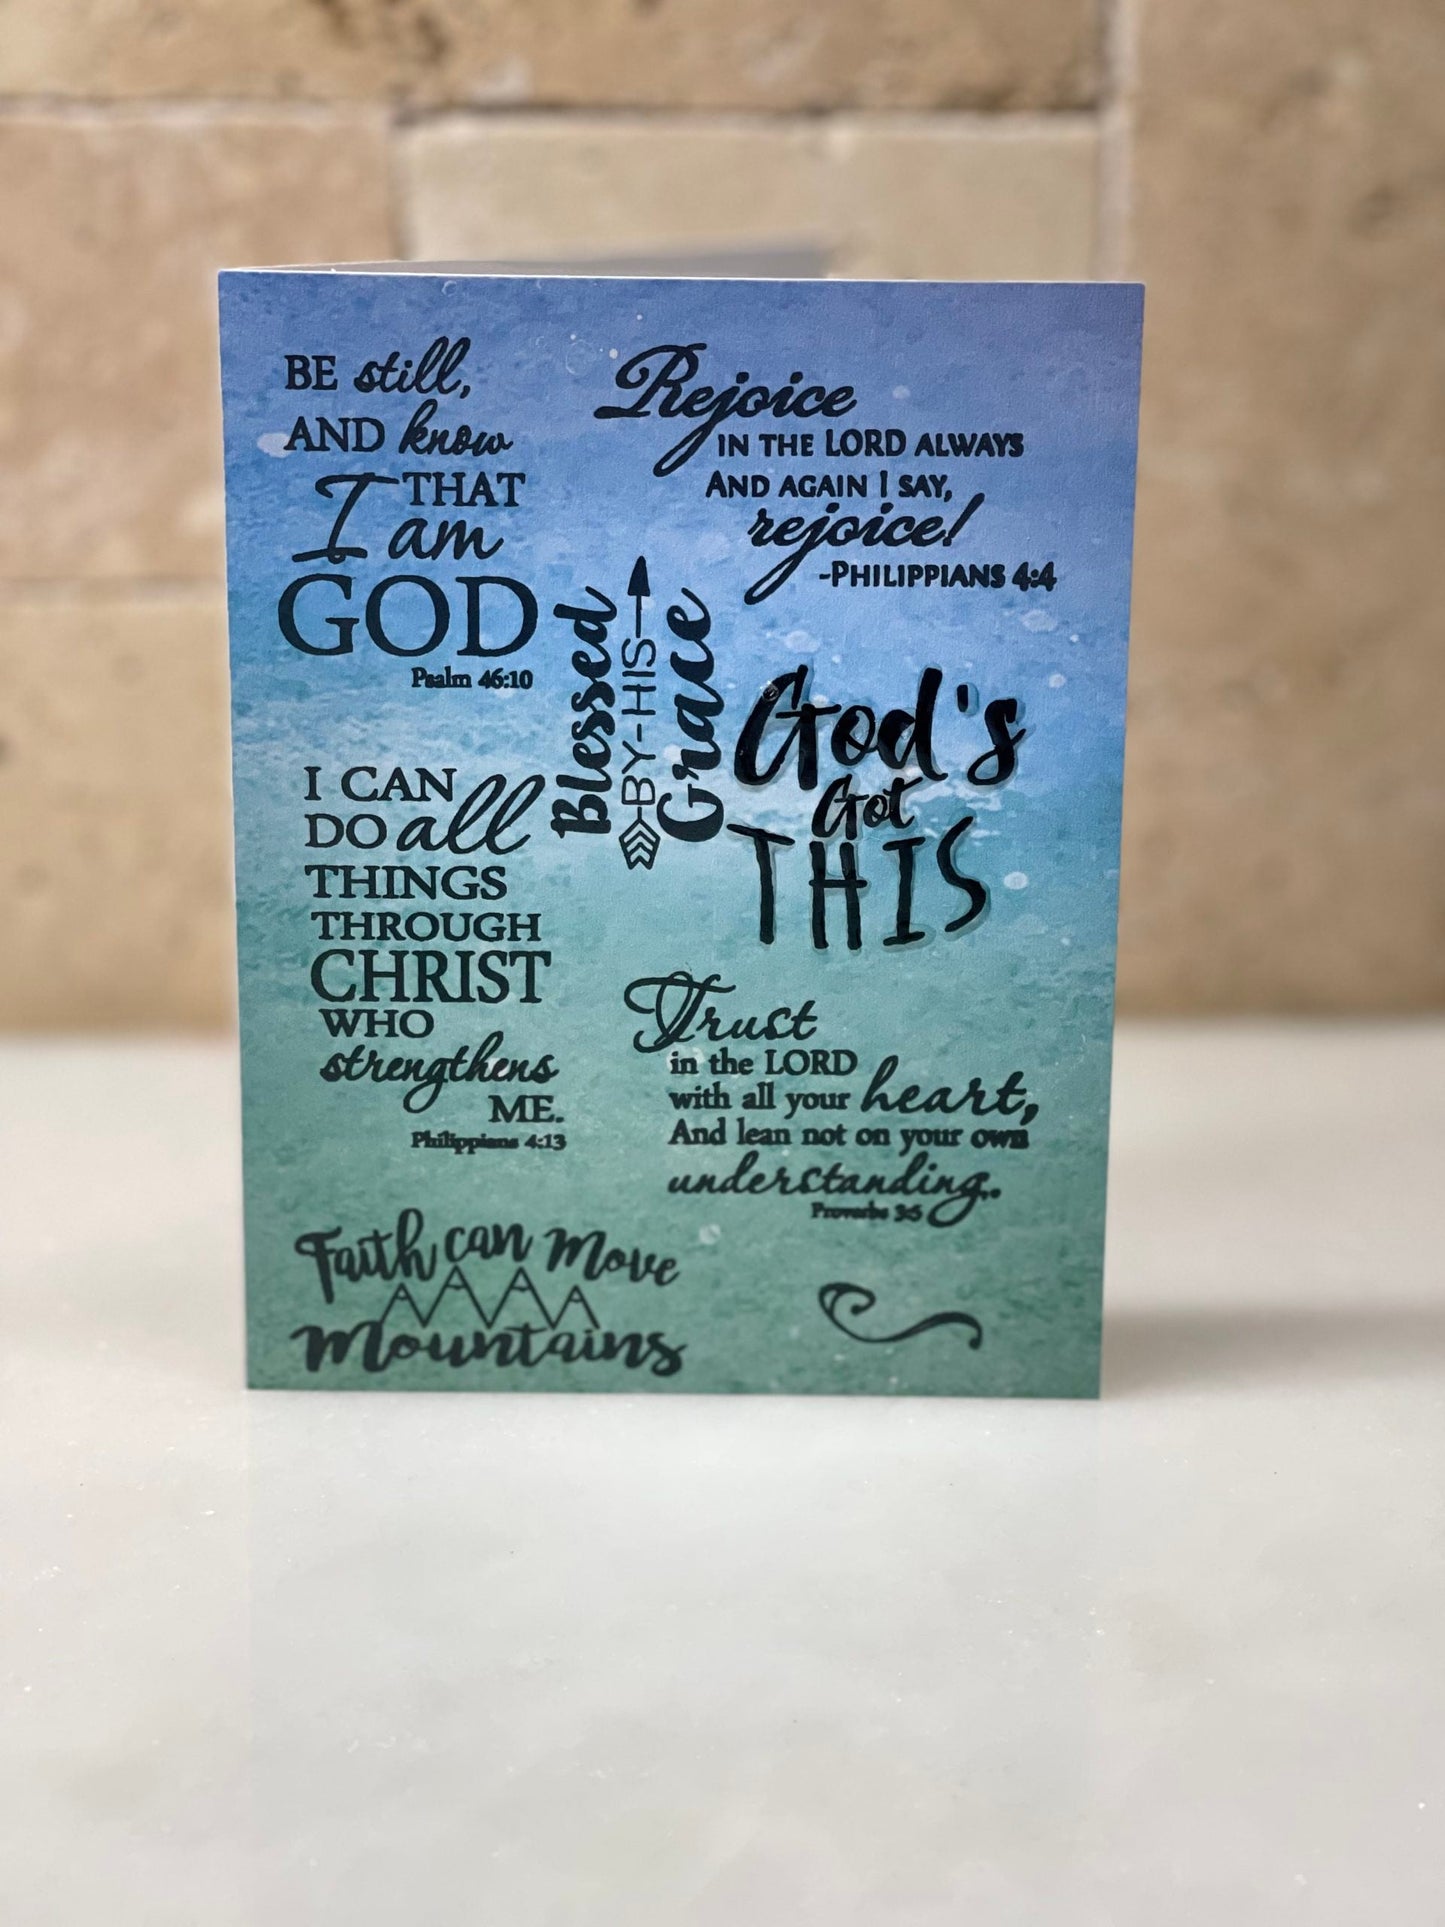 BE still,
AND know
THAT
I am
GOD
Psalm 46:10
Rejoice
IN THE LORD ALWAYS
AND AGAIN I SAY,
rejoice!
-PHILIPPIANS 4:4
Blessed
BY-HIS
Grace
God's
Got
THIS
I CAN
DO all
THINGS
THROUGH
CHRIST
WHO
strengthens
ME.
Philippians 4:13
Trust
in the LORD
with all your heart,
And lean not on your own
understanding..
Proverbs 3:5
Faith can Move
Mountains